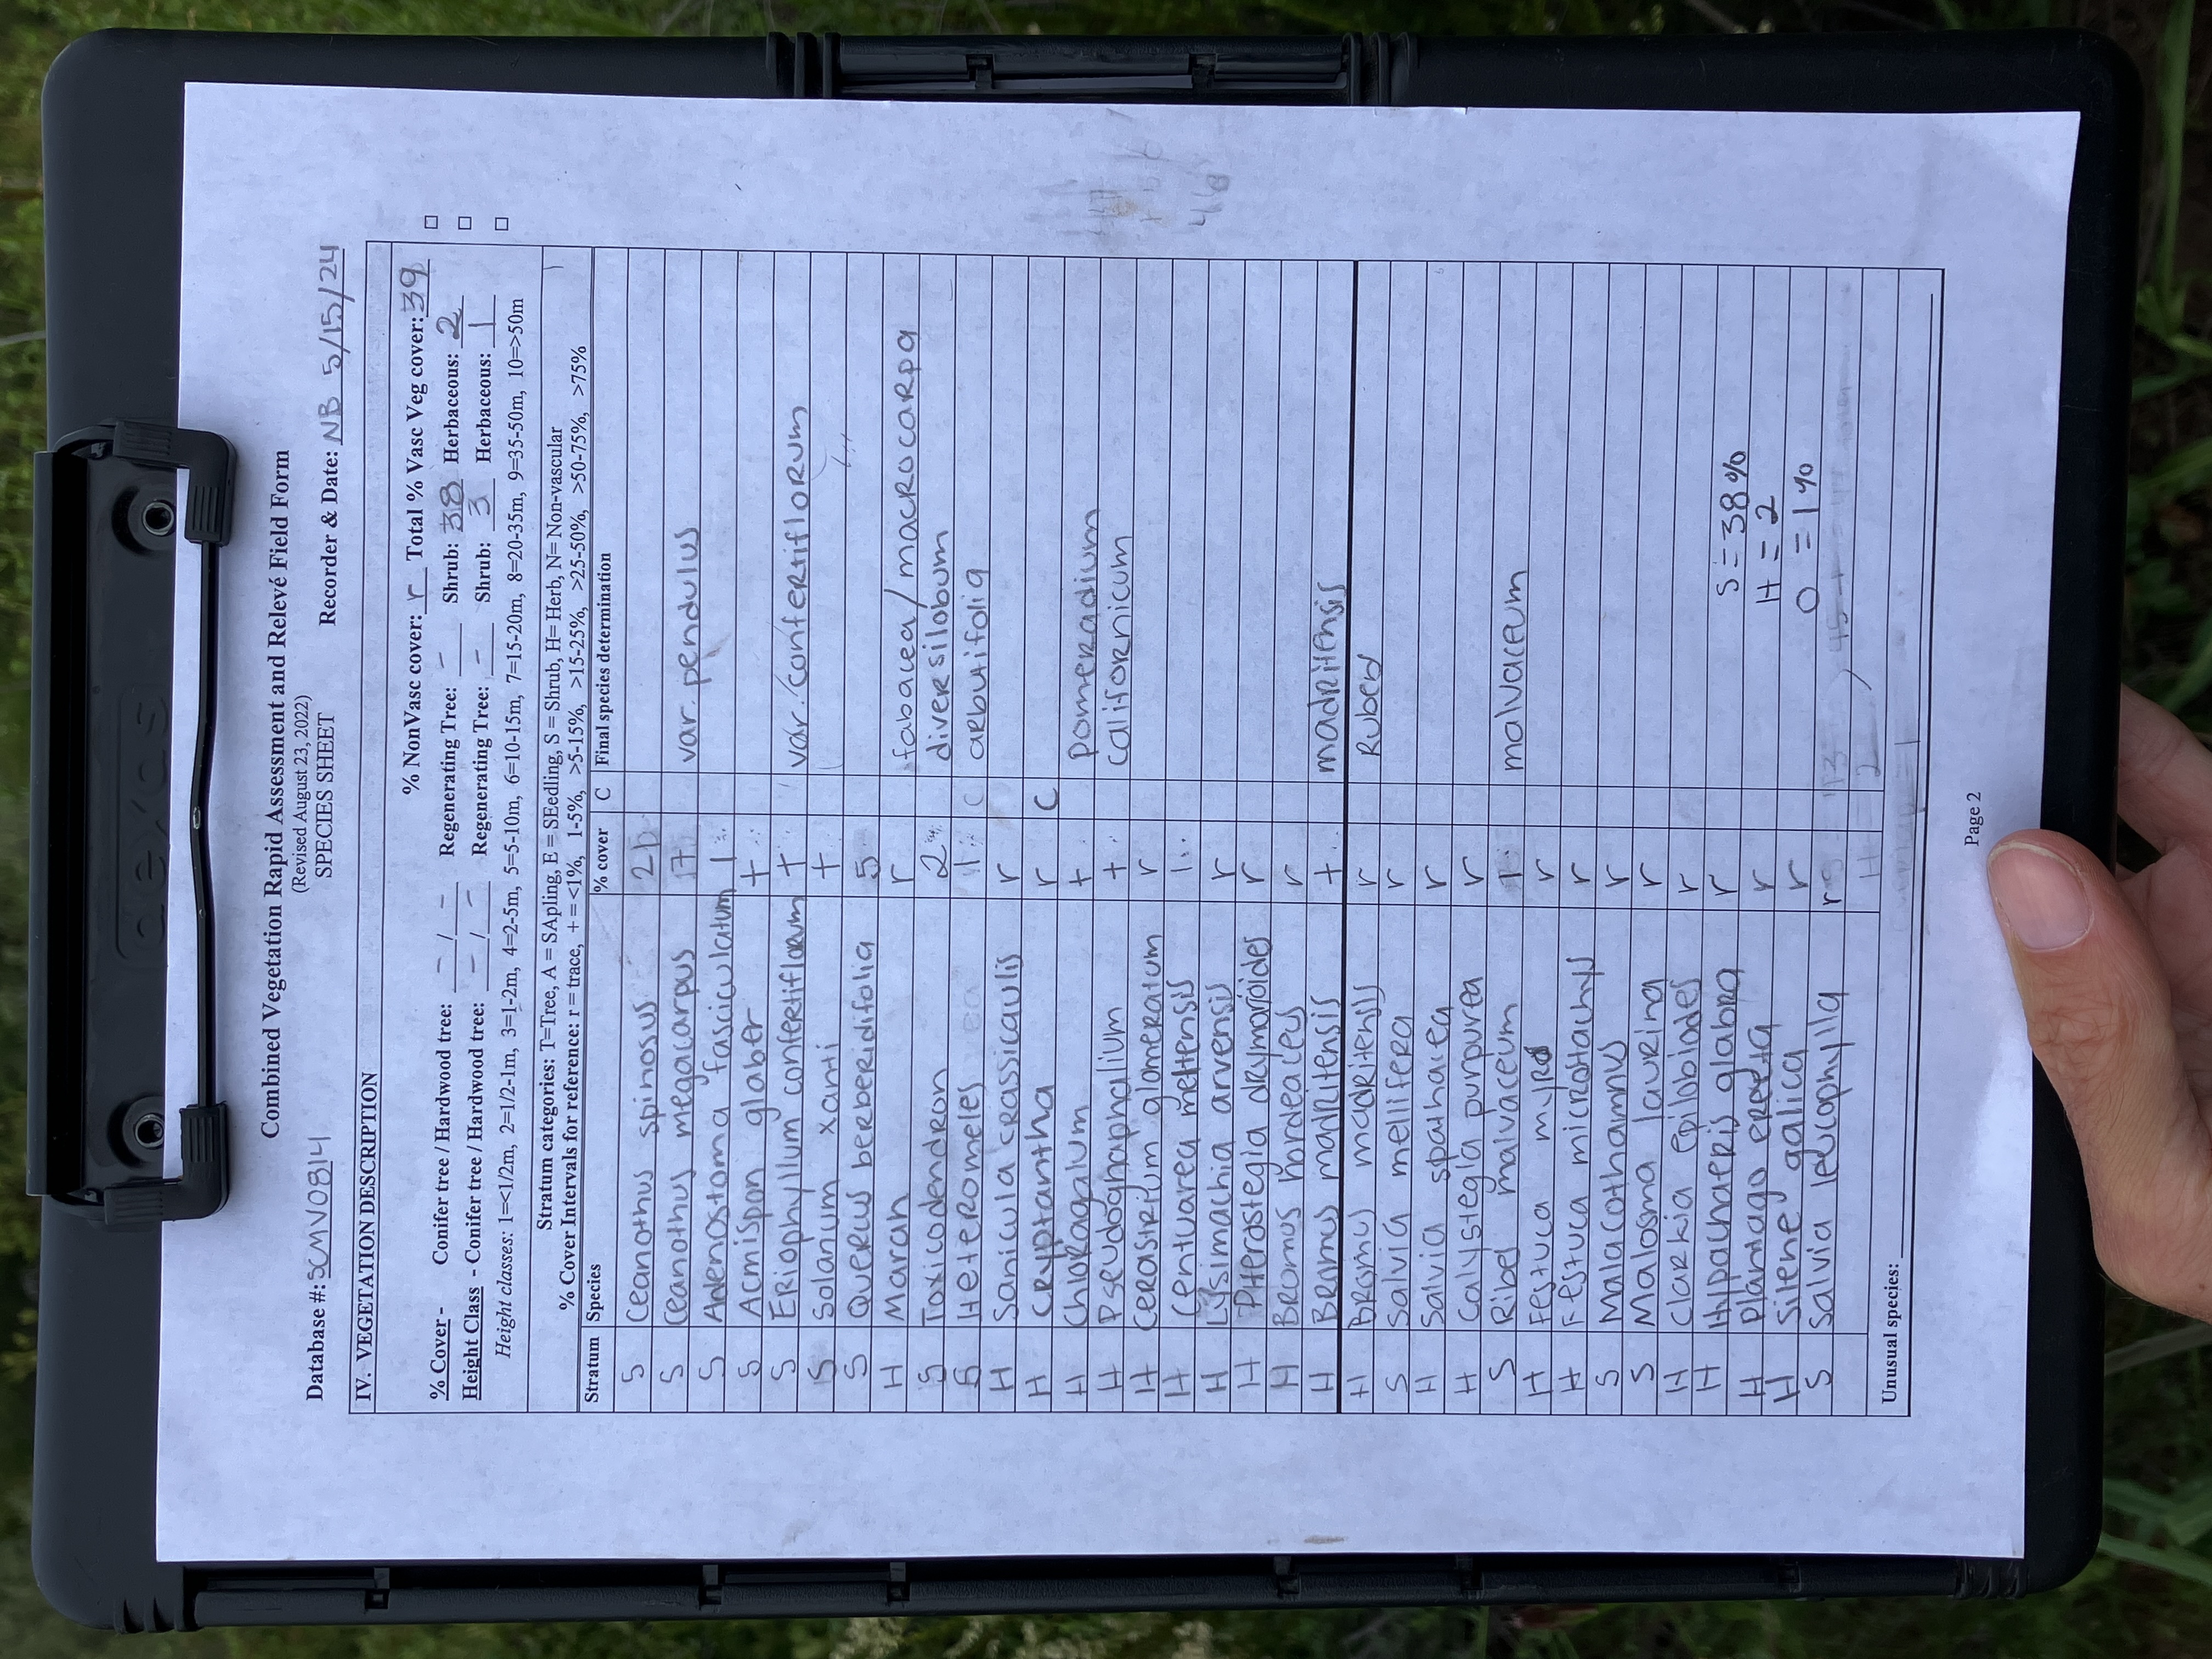 Combined Vegetation Rapid Assessment and Relevé Field Form
(Revised August 23, 2022)
SPECIES SHEET
Database #: SCMV0814 Recorder & Date: NB 5/15/24
IV. VEGETATION DESCRIPTION
% NonVasc cover: r Total % Vasc Veg cover: 39
% Cover - Conifer tree / Hardwood tree: - / - Regenerating Tree: - Shrub: 38 Herbaceous: 2
Height Class - Conifer tree / Hardwood tree: - / - Regenerating Tree: - Shrub: 3 Herbaceous: 1
Height classes: 1=<1/2m, 2=1/2-1m, 3=1-2m, 4=2-5m, 5=5-10m, 6=10-15m, 7=15-20m, 8=20-35m, 9=35-50m, 10=>50m
Stratum categories: T=Tree, A = SApling, E = SEedling, S = Shrub, H= Herb, N= Non-vascular
% Cover Intervals for reference: r = trace, + = <1%, 1-5%, >5-15%, >15-25%, >25-50%, >50-75%, >75%
Stratum Species % cover C Final species determination
S Ceanothus spinosus
S Ceanothus megacarpus 17 var. pendulus
S Adenostoma fasciculatum 1
S Acmispon glaber +
S Eriophyllum confertiflorum + var. confertiflorum
S Solanum xanti +
S Quercus berberidifolia 5
H Marah r fabacea/macrocarpa
S Toxicodendron 2 diversilobum
S Heteromeles 1 C arbutifolia
H Sanicula crassicaulis r
H Cryptantha r C
H Chloragalum + pomeradium
H Pseudognaphalium + californicum
H Cerastrium glomeratum r
H Centuarea meltensis 1
H Lysimachia arvensis r
H Pterostegia drymarioides r
H Bromus hordeaceus r
H Bromus madritensis + madritensis
H Bromus madritensis r Rubed
S Salvia mellifera r
H Salvia spathacea r
H Calystegia purpurea r
S Ribes malvaceum 1 malvaceum
H Festuca myros r
H Festuca microstachys r
S Malacothamnus r
S Malosma laurina r
H Clarkia epilobiodes r
H Hypochaeris glabra r S = 38%
H Plantago erecta r H = 2
H Silene galica r O = 1%
S Salvia leucophylla r
Unusual species:
Page 2